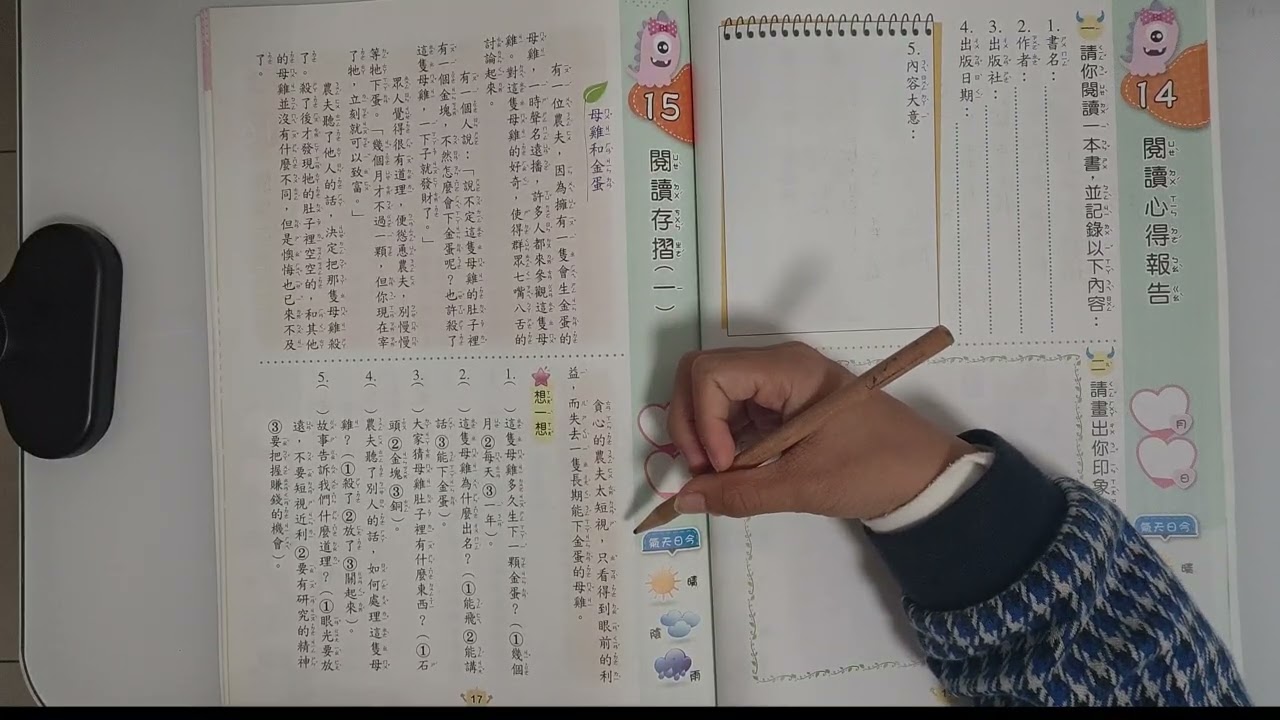 14
閱讀心得報告
一 請你閱讀一本書，並記錄以下內容：
1. 書名：
2. 作者：
3. 出版社：
4. 出版日期：
5. 內容大意：
二 請畫出你印象
月
日
今日天氣
晴
15
閱讀存摺（一）
今日天氣
晴
陰
雨
母雞和金蛋
有一位農夫，因為擁有一隻會生金蛋的
母雞，一時聲名遠播，許多人都來參觀這隻母
雞。對這隻母雞的好奇，使得群眾七嘴八舌的
討論起來。
有一個人說：「說不定這隻母雞的肚子裡
有一個金塊，不然怎麼會下金蛋呢？也許殺了
這隻母雞，一下子就發財了。」
眾人覺得很有道理，便慫恿農夫，別慢慢
等牠下蛋。「幾個月才不過一顆，但你現在宰
了牠，立刻就可以致富。」
農夫聽了他人的話，決定把那隻母雞殺
了。殺了後才發現牠的肚子裡空空的，和其他
的母雞並沒有什麼不同，但是懊悔也已來不及
了。
貪心的農夫太短視，只看得到眼前的利
益，而失去一隻長期能下金蛋的母雞。
想一想
1. （ ）這隻母雞多久生下一顆金蛋？（①幾個
月②每天③一年）。
2. （ ）這隻母雞為什麼出名？（①能飛②能講
話③能下金蛋）。
3. （ ）大家猜母雞肚子裡有什麼東西？（①石
頭②金塊③銅）。
4. （ ）農夫聽了別人的話，如何處理這隻母
雞？（①殺了②放了③關起來）。
5. （ ）故事告訴我們什麼道理？（①眼光要放
遠，不要短視近利②要有研究的精神
③要把握賺錢的機會）。
17